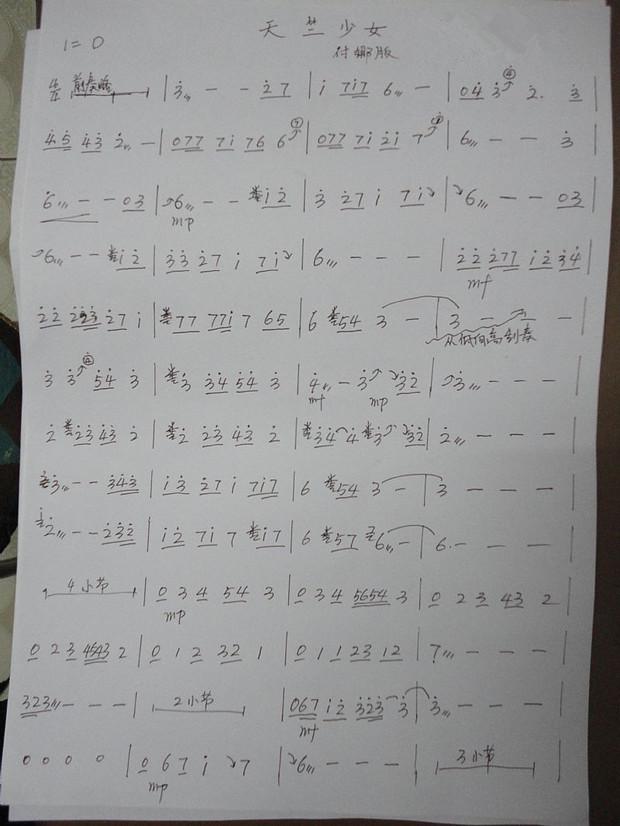 天竺少女
1=D
付娜版
前奏略 | 3̇/// - - 2̇ 7 | i 7i7 6/// - | 04̇ 3̇ 2̇. 3̇ |
4̇5̇ 4̇3̇ 2̇/// - | 077 7i 76 6 | 077 7i 2̇i 7 | 6/// - - 3̇ |
6/// - - 03 | 6/// - - i2̇ | 3̇ 2̇7 i 7i | 6/// - - 03 |
mp
6/// - - i2̇ | 3̇3̇ 2̇7 i 7i | 6/// - - - | 2̇2̇ 2̇77 i2̇ 3̇4̇ |
mf
2̇2̇ 2̇2̇3̇ 2̇7 i | 77 77i 7 65 | 6 54 3 - | 3 - - - |
从低向高刮奏
3̇ 3̇ 5̇4̇ 3̇ | 3̇ 3̇4̇ 5̇4̇ 3̇ | 4̇/// - 3̇ 3̇2̇ | 3̇/// - - - |
mf mp
2̇ 2̇3̇ 4̇3̇ 2̇ | 2̇ 2̇3̇ 4̇3̇ 2̇ | 3̇4̇ 4̇ 3̇ 3̇2̇ | 2̇/// - - - |
3̇/// - - 3̇4̇3̇ | i3̇ 2̇7 i 7i7 | 6 54 3 - | 3 - - - |
2̇/// - - 2̇3̇2̇ | i2̇ 7i 7 i7 | 6 57 6/// - | 6. - - - |
4小节 | 0 3 4 54 3 | 0 3 4 5654 3 | 0 2 3 43 2 |
mp
0 2 3 4543 2 | 0 1 2 32 1 | 0 1 1 2 3 1 2 | 7/// - - - |
323/// - - - | 2小节 | 067 i2̇ 3̇2̇3̇ 3̇ | 3̇/// - - - |
mf
0 0 0 0 | 0 6 7 i 7 | 6/// - - - | 3小节 |
mp